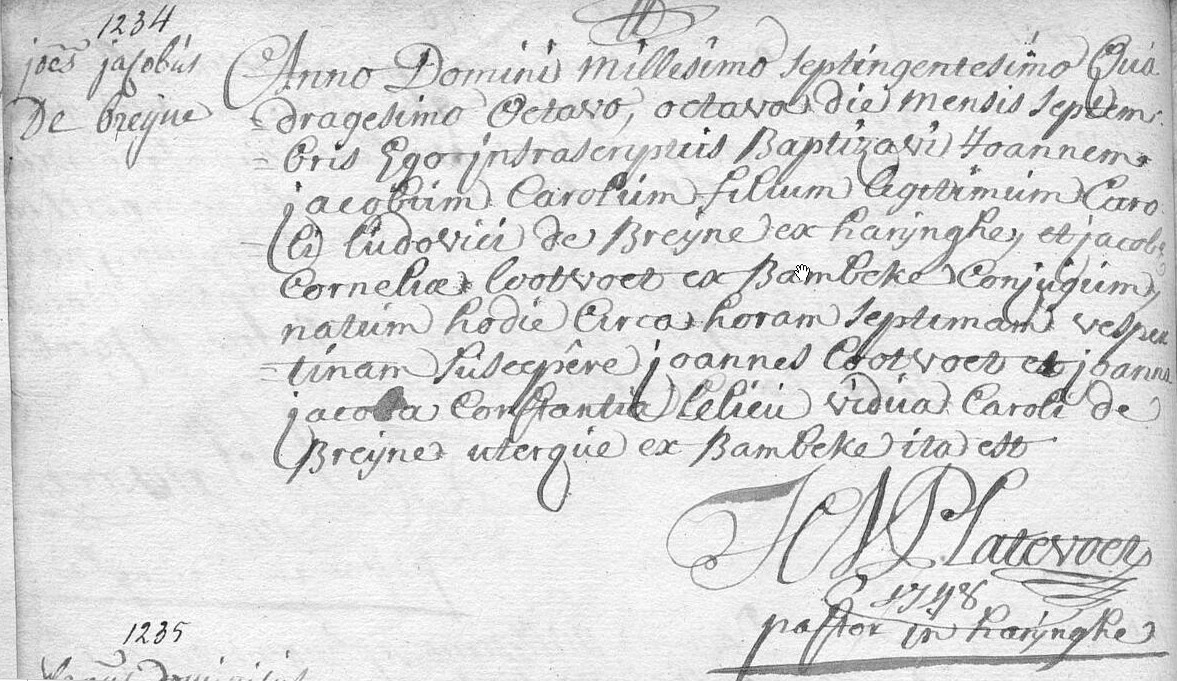 1234
joēs jacobus
De Breijne
Anno Domini Millesimo Septingentesimo Qua
=dragesimo Octavo, octava die mensis Septem
=bris Ego infrascriptus Baptizavi Joannem
jacobum Carolum filium legitimum Caro
=li ludovici de Breijne ex harijnghe, et jacobæ
Corneliæ lootvoet ex Bambeke Conjugum,
natum hodie Circa horam Septimam vesper
=tinam Suscepêre joannes lootvoet et joanna
jacoba Constantia lelieu vidua Caroli de
Breijne uterque ex Bambeke ita est
Platevoet
1748
pastor in harijnghe
1235